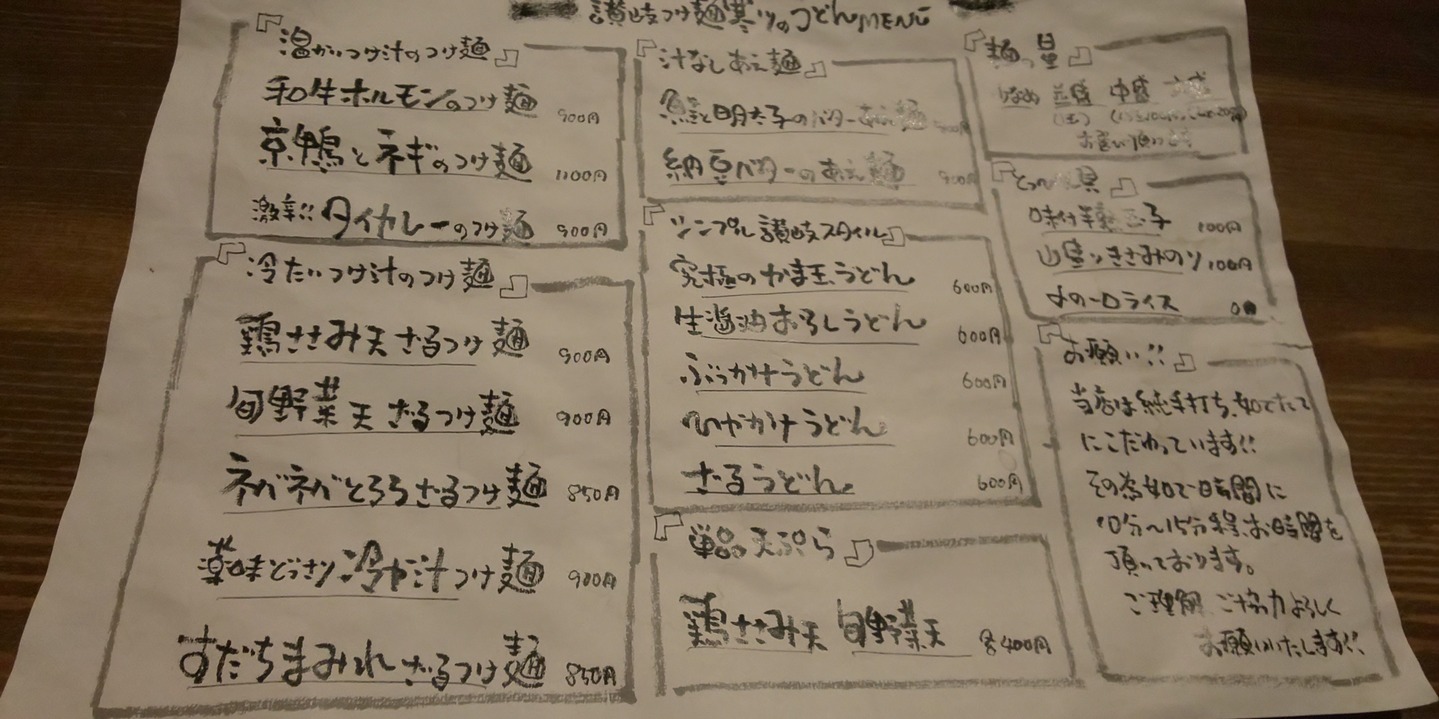 讃岐つけ麺寒川のうどんMENU
『温かいつけ汁のつけ麺』
和牛ホルモンのつけ麺 900円
京鴨とネギのつけ麺 1100円
激辛!! タイカレーのつけ麺 900円
『冷たいつけ汁のつけ麺』
鶏ささみ天ざるつけ麺 900円
旬野菜天ざるつけ麺 900円
ネバネバとろろざるつけ麺 850円
薬味どっさり冷や汁つけ麺 900円
すだちまみれざるつけ麺 850円
『汁なしあえ麺』
明太子のバターあえ麺
納豆バターのあえ麺 900円
『シンプル讃岐スタイル』
究極のかま玉うどん 600円
生醤油おろしうどん 600円
ぶっかけうどん 600円
ひやかけうどん 600円
ざるうどん 600円
『単品天ぷら』
鶏ささみ天 旬野菜天 各400円
『麺の量』
少なめ 並盛 中盛 大盛
お選び頂けます
『とっぴんぐ具』
味付半熟玉子 100円
山盛りきざみのり 100円
〆の一口ライス 0円
『お願い!!』
当店は純手打ち、茹でたて
にこだわっています!!
その為茹で時間に
10分〜15分程、お時間を
頂いております。
ご理解ご協力よろしく
お願いいたします!!